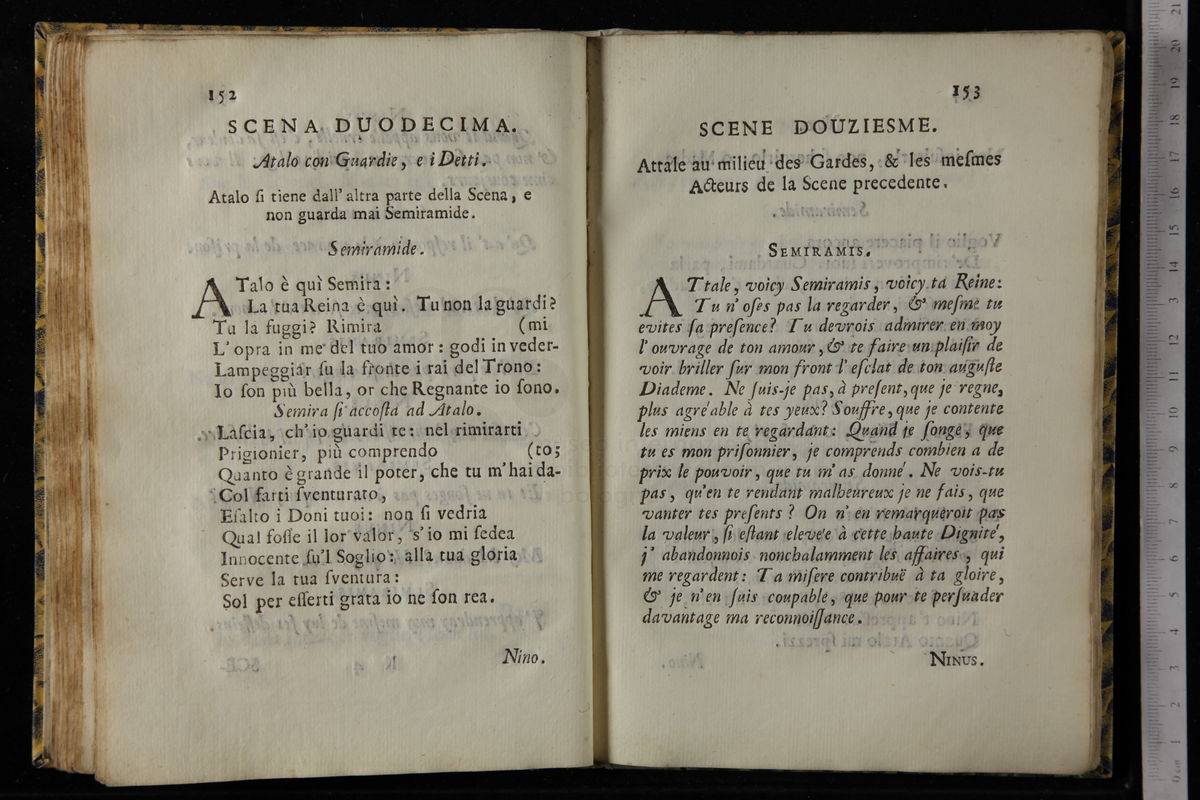 152
SCENA DUODECIMA.
Atalo con Guardie, e i Detti.
Atalo ſi tiene dall' altra parte della Scena, e
non guarda mai Semiramide.
Semiramide.
ATalo è quì Semira:
La tua Reina è quì. Tu non la guardi?
Tu la fuggi? Rimira (mi
L' opra in me del tuo amor: godi in veder-
Lampeggiar ſu la fronte i rai del Trono:
Io ſon più bella, or che Regnante io ſono.
Semira ſi accoſta ad Atalo.
Laſcia, ch' io guardi te: nel rimirarti
Prigionier, più comprendo (to;
Quanto è grande il poter, che tu m' hai da-
Col farti ſventurato,
Eſalto i Doni tuoi: non ſi vedria
Qual foſſe il lor valor, s' io mi ſedea
Innocente ſu'l Soglio: alla tua gloria
Serve la tua ſventura:
Sol per eſſerti grata io ne ſon rea.
Nino.
153
SCENE DOUZIESME.
Attale au milieu des Gardes, & les meſmes
Acteurs de la Scene precedente.
SEMIRAMIS.
ATtale, voicy Semiramis, voicy ta Reine:
Tu n' oſes pas la regarder, & meſme tu
evites ſa preſence? Tu devrois admirer en moy
l' ouvrage de ton amour, & te faire un plaiſir de
voir briller ſur mon front l' eſclat de ton auguſte
Diademe. Ne ſuis-je pas, à preſent, que je regne,
plus agréable à tes yeux? Souffre, que je contente
les miens en te regardant: Quand je ſonge, que
tu es mon priſonnier, je comprends combien a de
prix le pouvoir, que tu m' as donné. Ne vois-tu
pas, qu'en te rendant malheureux je ne fais, que
vanter tes preſents? On n' en remarqueroit pas
la valeur, ſi eſtant elevée à cette haute Dignité,
j' abandonnois nonchalamment les affaires, qui
me regardent: Ta miſere contribuë à ta gloire,
& je n'en ſuis coupable, que pour te perſuader
davantage ma reconnoiſſance.
NINUS.